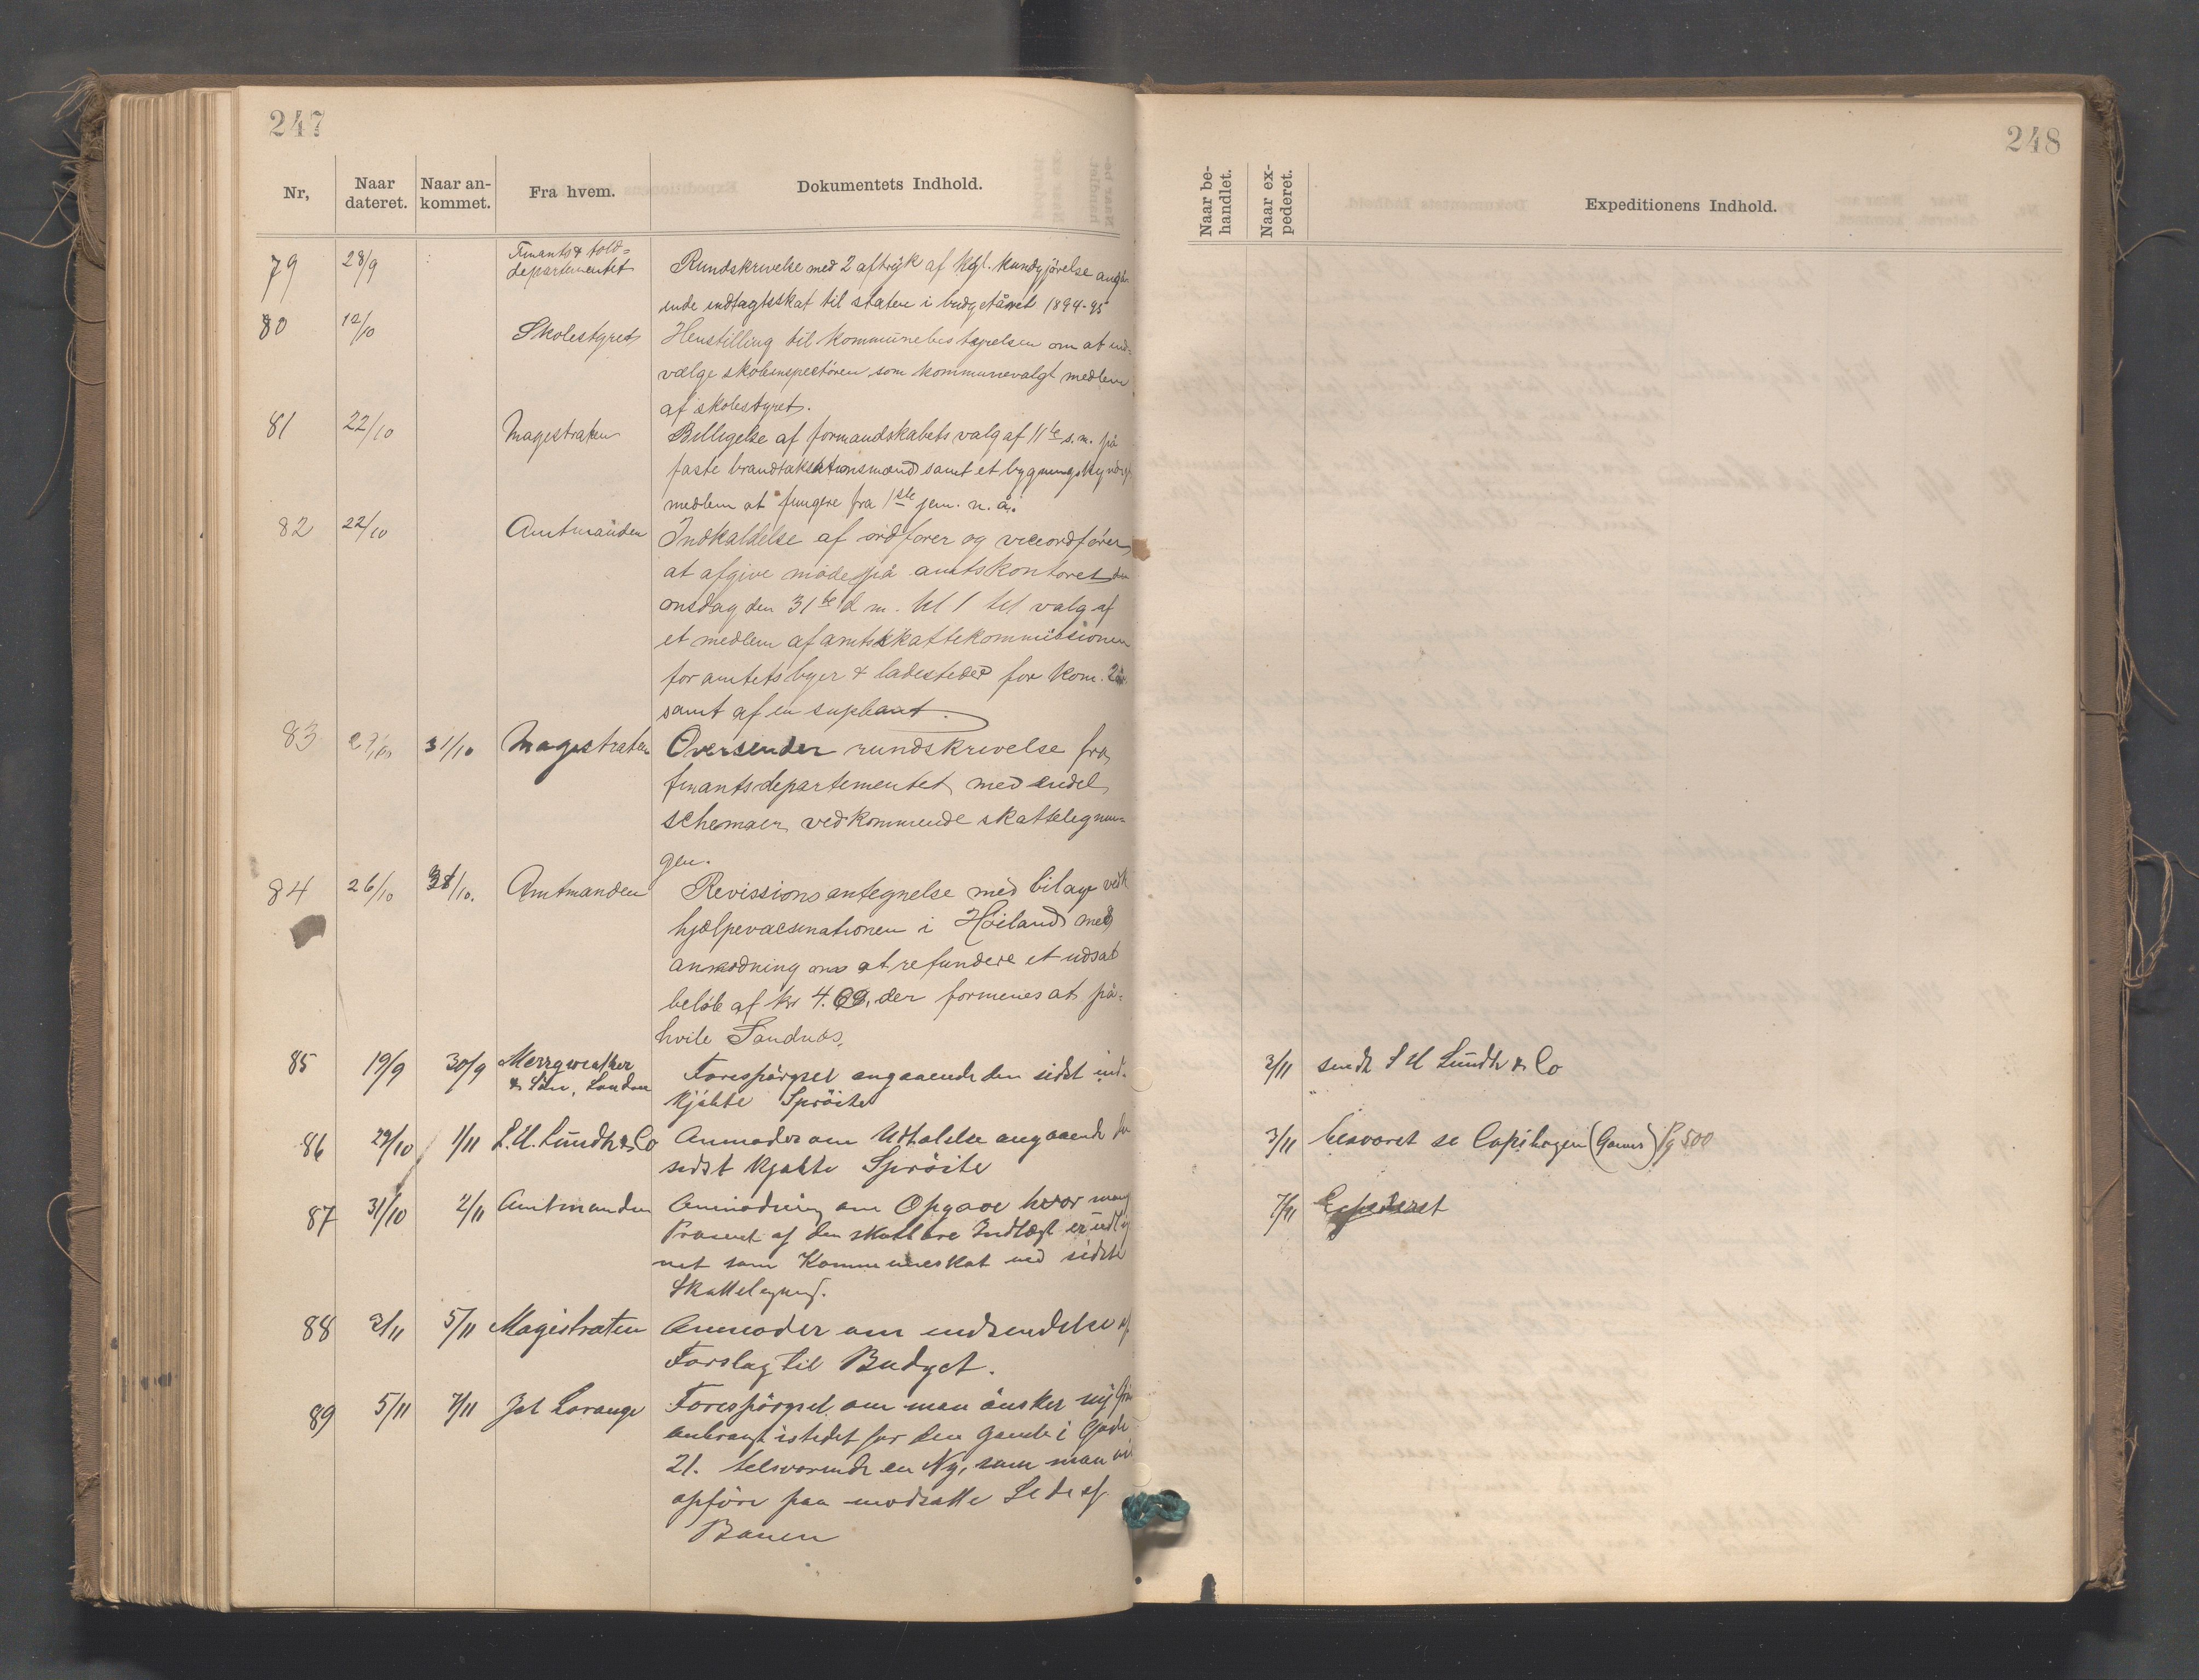 247
Nr,
Naar dateret.
Naar an-kommet.
Fra hvem.
Dokumentets Indhold.
79 28/9 Finants & told=
departementet
Rundskrivelse med 2 aftryk af kgl. kundgjörelse angå-
ende indtægtsskat til staten i budgetåret 1894-95
80 12/10 Skolestyret Henstilling til kommunebestyrelsen om at ind-
vælge skoleinspectören som kommunevalgt medlem
af skolestyret.
81 22/10 Magestraten Billigelse af formandskabets valg af 11te s.m. på
faste brandtakstationsmænd samt et bygningskyndig
medlem at fungere fra 1ste jan. n. å.
82 22/10 Amtmanden Indkaldelse af ordfører og viceordfører
at afgive møde på amtskontoret
onsdag den 31te d m. kl 1 til valg af
et medlem af amtsskattekommissionen
for amtets byer & ladesteder for kom.
samt af en supleant.
83 31/10 Magestraten Oversender rundskrivelse fra
finantsdepartementet med endel
schemaer vedkommende skattelignin-
gen.
84 26/10 /10. Amtmanden Revissionsantegnelse med bilage vedk
hjælpevacsinationen i Høiland med
anmodning om at refundere et udsat
beløb af kr 4. der formenes at på-
hvile Sandnæs.
85 19/9 30/9 Merryweather
& Sön, London
Forespörgsel angaaende den sidst ind-
kjøbte Sprøite
86 29/10 1/11 L. U. Lündh & Co Anmoder om Udtalelse angaaende
sidst kjøbte Sprøite
87 31/10 2/11 Amtmanden Anmodning om Opgave hvor mang
Procent af den skatbare Indtægt er udlig
net som Kommuneskat ved sidste
Skatteligning.
88 2/11 5/11 Magistraten Anmoder om indsendelse af
Forslag til Budget.
89 5/11 7/11 Forespörgsel om man önsker ny
anbragt istedet for den gamle i Gade
21. tilsvarende en Ny, som man vil
opföre paa modsatte Side af
Banen
248
Naar be-handlet.
Naar ex-pederet.
Expeditionens Indhold.
3/11 sendt L U Lündh & Co
3/11 besvaret se Copibogen Pg 500
7/11 Expederet